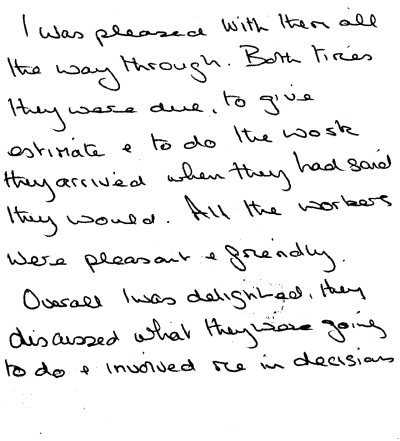 I was pleased with them all
the way through. Both times
they were due, to give
estimate & to do the work
they arrived when they had said
they would. All the workers
were pleasant & friendly.
Overall I was delighted, they
discussed what they were going
to do & involved me in decisions